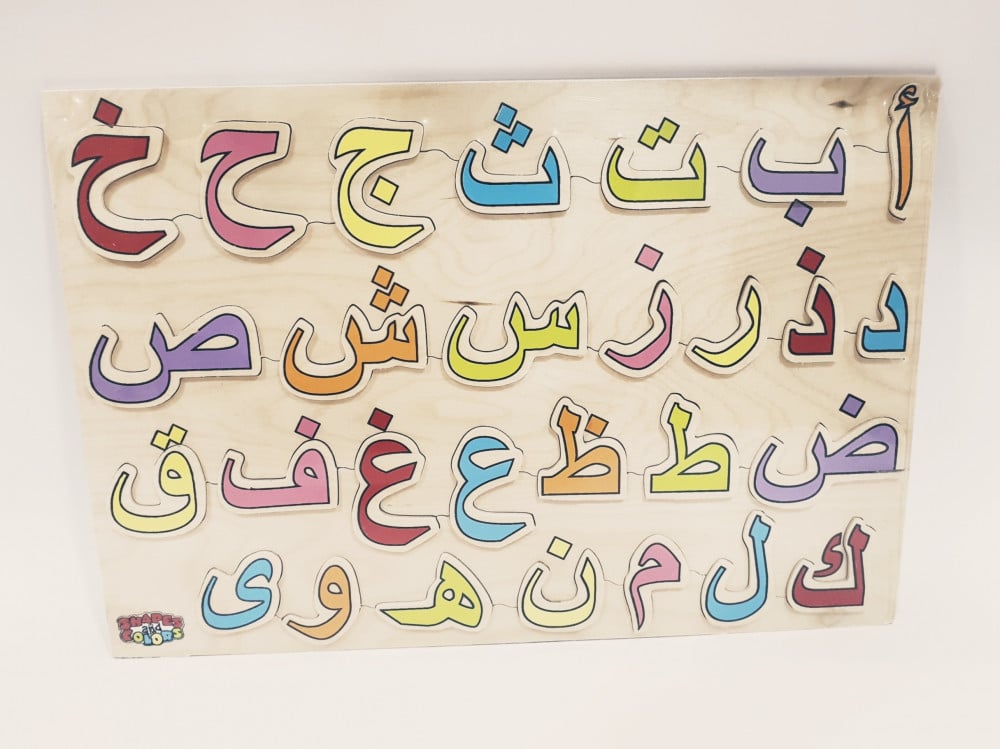 أ ب ت ث ج ح خ
د ذ ر ز س ش ص
ض ط ظ ع غ ف ق
ك ل م ن ه و ى
SHAPES
and
COLORS